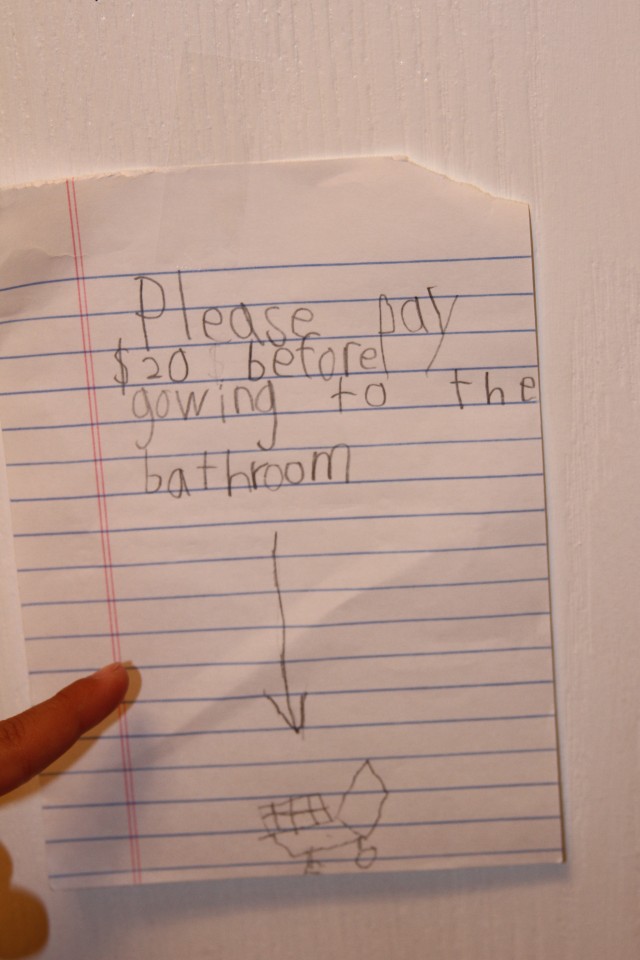 Please pay
$20 before
gowing to the
bathroom